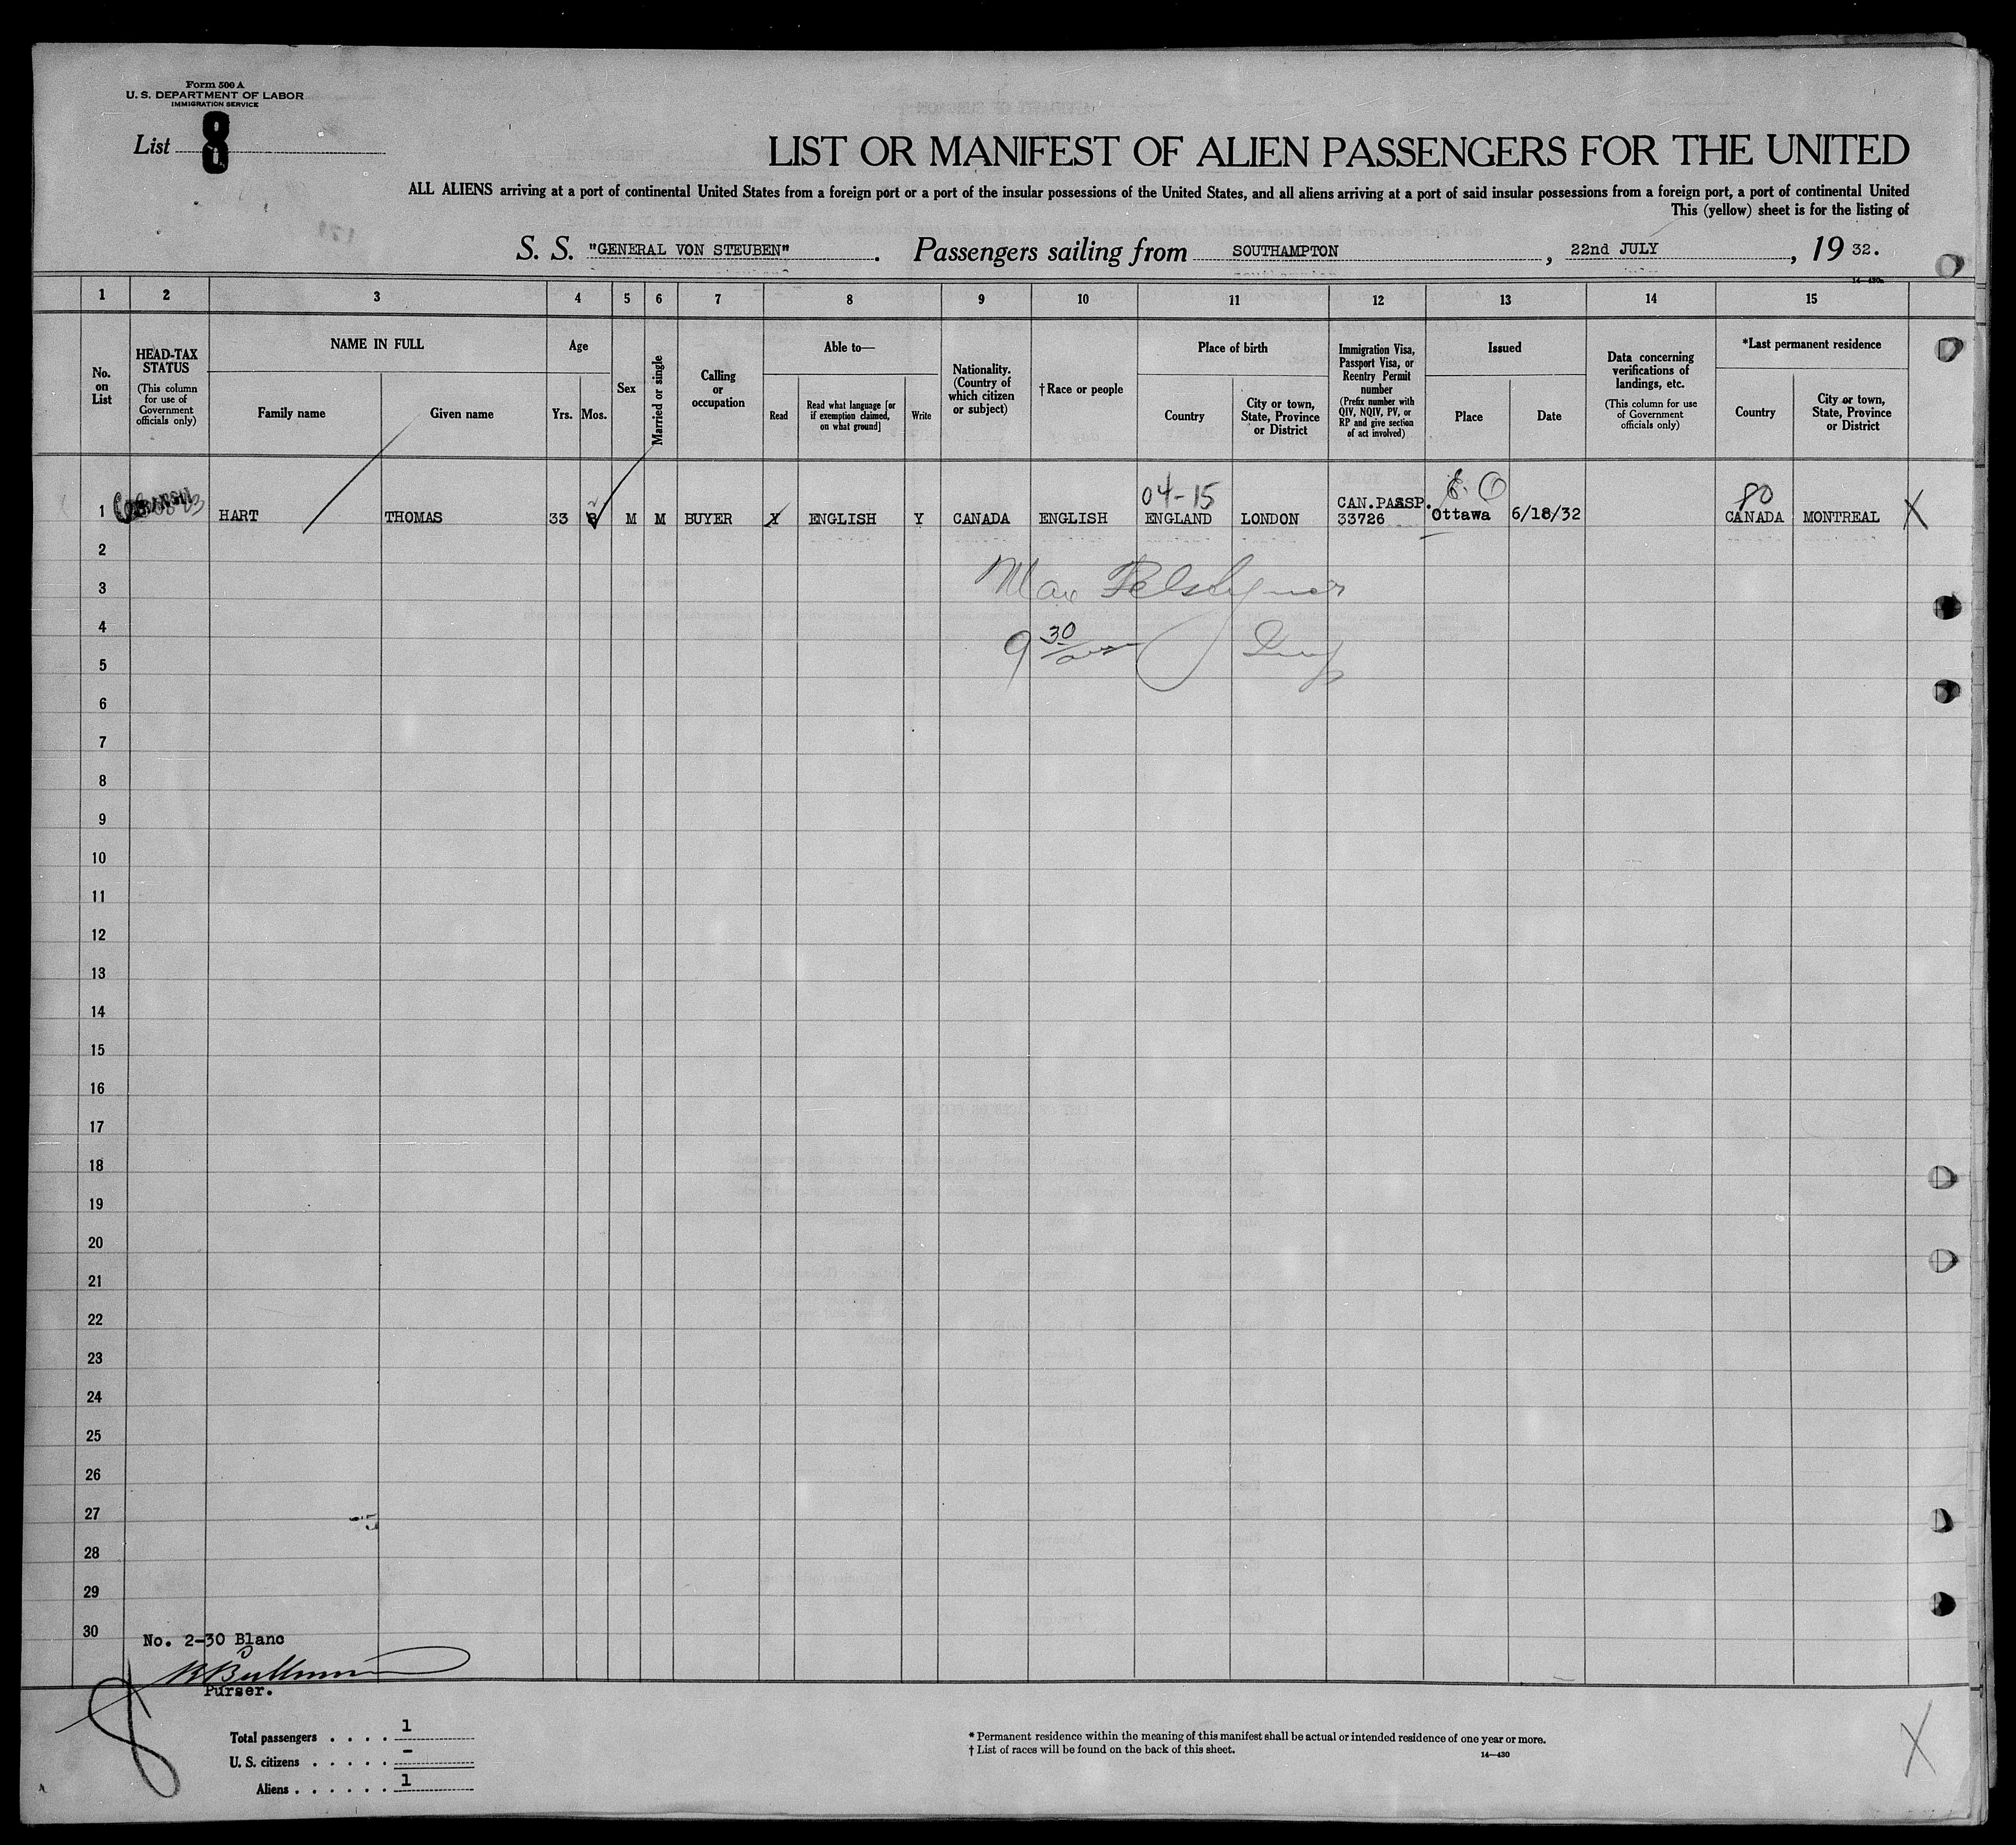 Form 500 A
U. S. DEPARTMENT OF LABOR
IMMIGRATION SERVICE
List 8
LIST OR MANIFEST OF ALIEN PASSENGERS FOR THE UNITED
ALL ALIENS arriving at a port of continental United States from a foreign port or a port of the insular possessions of the United States, and all aliens arriving at a port of said insular possessions from a foreign port, a port of continental United
This (yellow) sheet is for the listing of
S. S. "GENERAL VON STEUBEN" . Passengers sailing from SOUTHAMPTON , 22nd JULY , 19 32.
1 2 3 4 5 6 7 8 9 10 11 12 13 14 15
No. on List
HEAD-TAX STATUS
(This column for use of Government officials only)
NAME IN FULL
Family name
Given name
Age
Yrs.
Mos.
Sex
Married or single
Calling or occupation
Able to—
Read
Read what language [or if exemption claimed, on what ground]
Write
Nationality. (Country of which citizen or subject)
† Race or people
Place of birth
Country
City or town, State, Province or District
Immigration Visa, Passport Visa, or Reentry Permit number
(Prefix number with QIV, NQIV, PV, or RP and give section of act involved)
Issued
Place
Date
Data concerning verifications of landings, etc.
(This column for use of Government officials only)
*Last permanent residence
Country
City or town, State, Province or District
04-15
80
1 HART THOMAS 33 M M BUYER ENGLISH Y CANADA ENGLISH ENGLAND LONDON CAN.PASSP. 33726 Ottawa 6/18/32 CANADA MONTREAL X
2
3 Max
4 9 30
5
6
7
8
9
10
11
12
13
14
15
16
17
18
19
20
21
22
23
24
25
26
27
28
29
30
No. 2-30 Blanc
Purser.
8
Total passengers . . . . 1
U. S. citizens . . . . . -
Aliens . . . . . . 1
* Permanent residence within the meaning of this manifest shall be actual or intended residence of one year or more.
† List of races will be found on the back of this sheet.
14—430
X